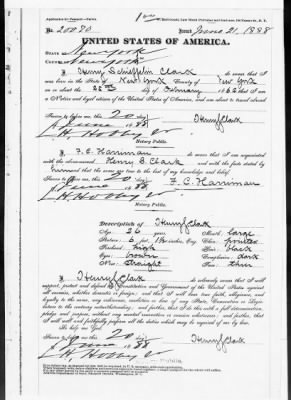 No. 20780 Issued June 21, 1888
UNITED STATES OF AMERICA.
STATE New York
COUNTY New York
I, Henry Schieffelin Clark do swear that I was
born in the State of New York County of New York
on or about the 22nd day of February 1862 that I am
a Native and loyal citizen of the United States of America, and am about to travel abroad
Sworn to before me, this 20 day Henry S Clark
of June 1888
H. Hobby Jr
Notary Public.
I, F. E. Harriman do swear that I am acquainted
with the above-named Henry S Clark and with the facts stated by
him and that the same are true to the best of my knowledge and belief.
Sworn to before me, this 20 day
of June 1888 F. E. Harriman
H. Hobby Jr
Notary Public.
DESCRIPTION OF Henry S Clark
Age: 26 years Mouth: large
Stature: 6 feet 1½ inches, Eng. Chin: pointed
Forehead: high Hair: black
Eyes: brown Complexion: dark
Nose: straight Face: thin
I, Henry S Clark do solemnly swear that I will
support, protect and defend the Constitution and Government of the United States against
all enemies, whether domestic or foreign; and that I will bear true faith, allegiance, and
loyalty to the same, any ordinance, resolution or law of any State, Convention or Legis-
lature to the contrary notwithstanding; and further, that I do this with a full determination,
pledge and purpose, without any mental reservation or evasion whatsoever; and further, that
I will well and faithfully perform all the duties which may be required of me by law.
So help me God.
Sworn to before me, this 20 day Henry S Clark
of June 1888
H. Hobby Jr